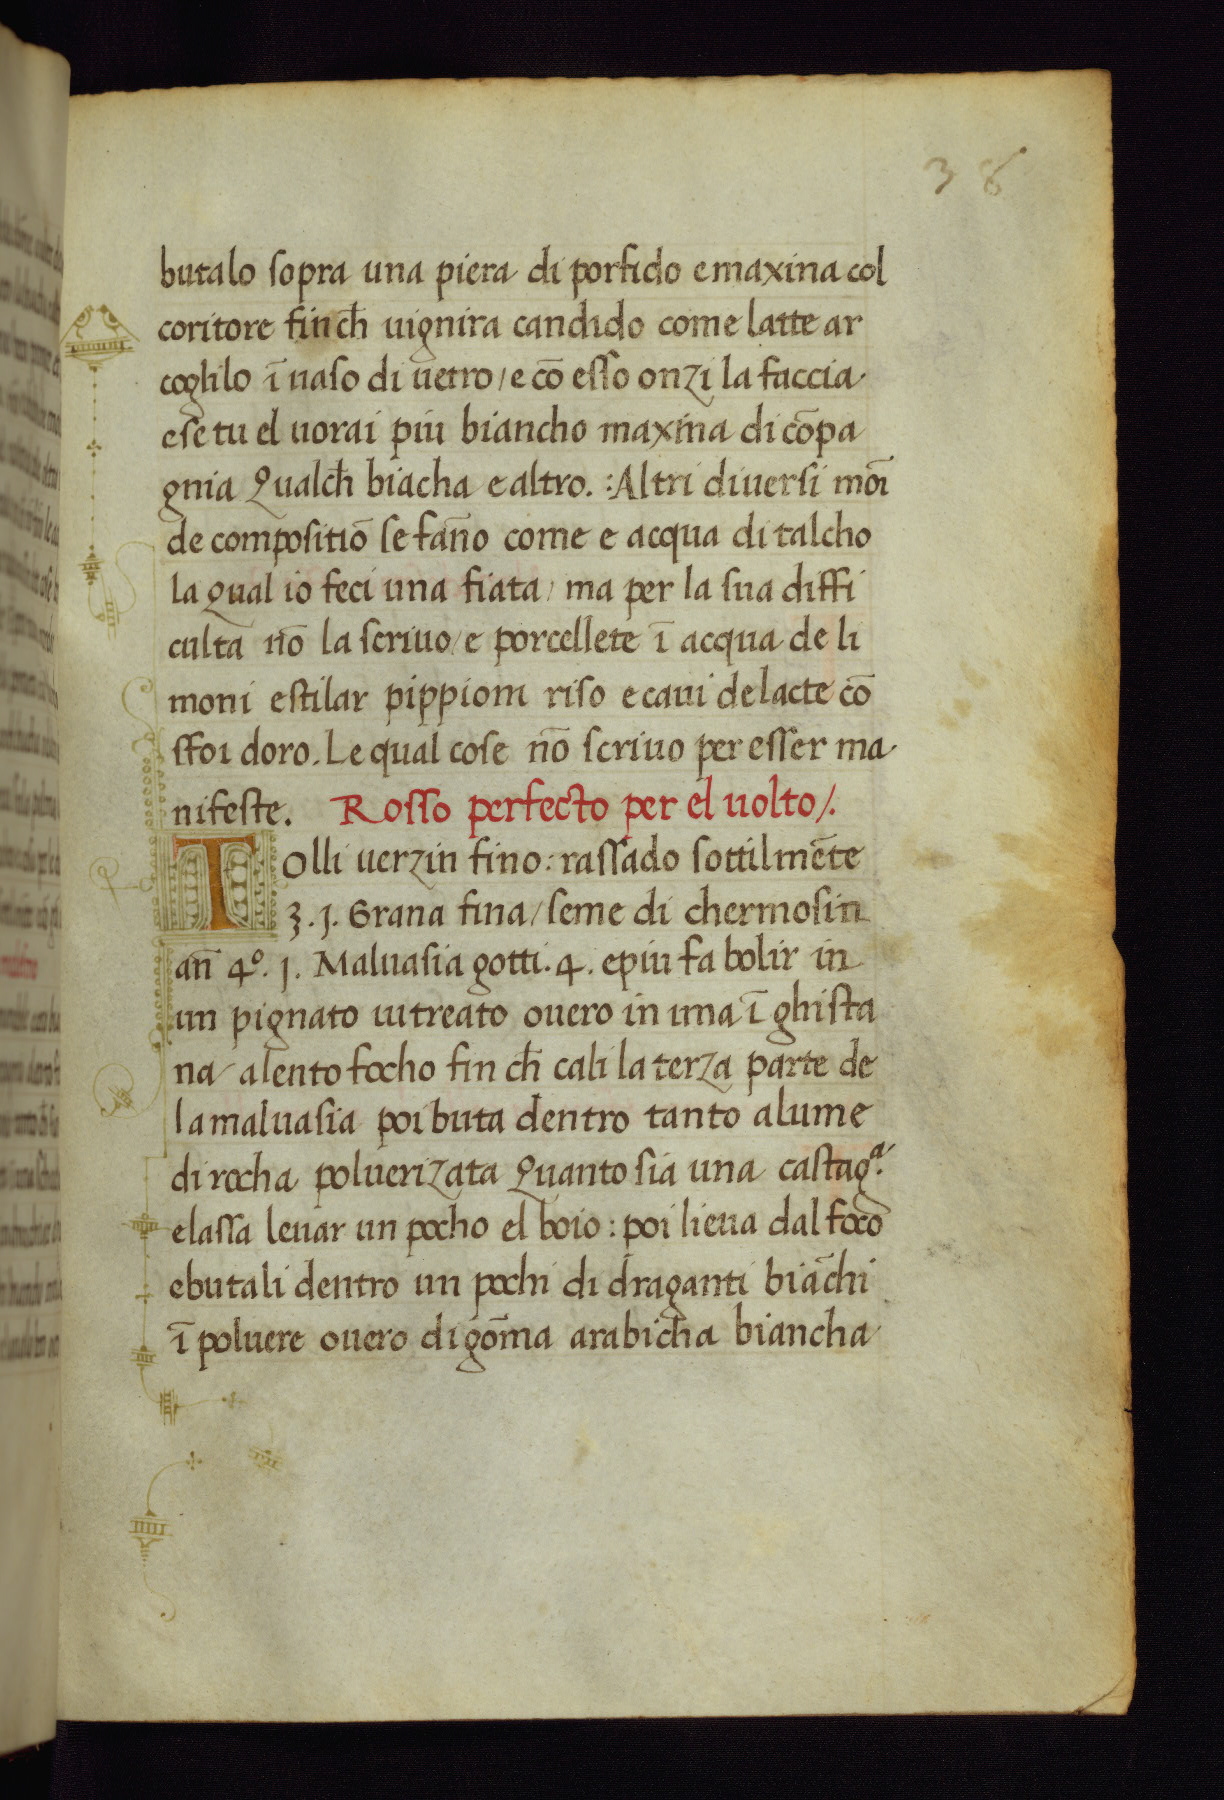 38
butalo sopra una piera di porfido e maxina col
coritore finch̄ uignira candido come latte ar
coghlo ī uaso di uetro / e cō esso onzi la faccia
e se tu el uorai piu biancho maxina di cōpa
gnia Qualch̄ biacha e altro. : Altri diuersi mōi
de compositiō se fan̄o come e acqua di talcho
la qual io feci una fiata / ma per la sua diffi
culta nō la scriuo / e porcellete ī acqua de li
moni e stilar pippioni riso e caui de lacte cō
sfoi doro. Le qual cose nō scriuo per esser ma
nifeste. Rosso perfecto per el uolto /.
Tolli uerzin fino : rassado sottilmēte
ʒ. j. Grana fina / seme di chermosin
an̄ 4º. j. Maluasia gotti. 4. e piu fa bolir in
un pignato uitreato ouero in una ī ghista
na a lento focho fin ch̄ cali la terza parte de
la maluasia poi buta dentro tanto alume
di rocha poluerizata Quanto sia una castagᵃ.
e lassa leuar un pocho el boio : poi lieua dal foco
e butali dentro un pochi di draganti biāchi
ī poluere ouero di gōma arabich̄a biancha